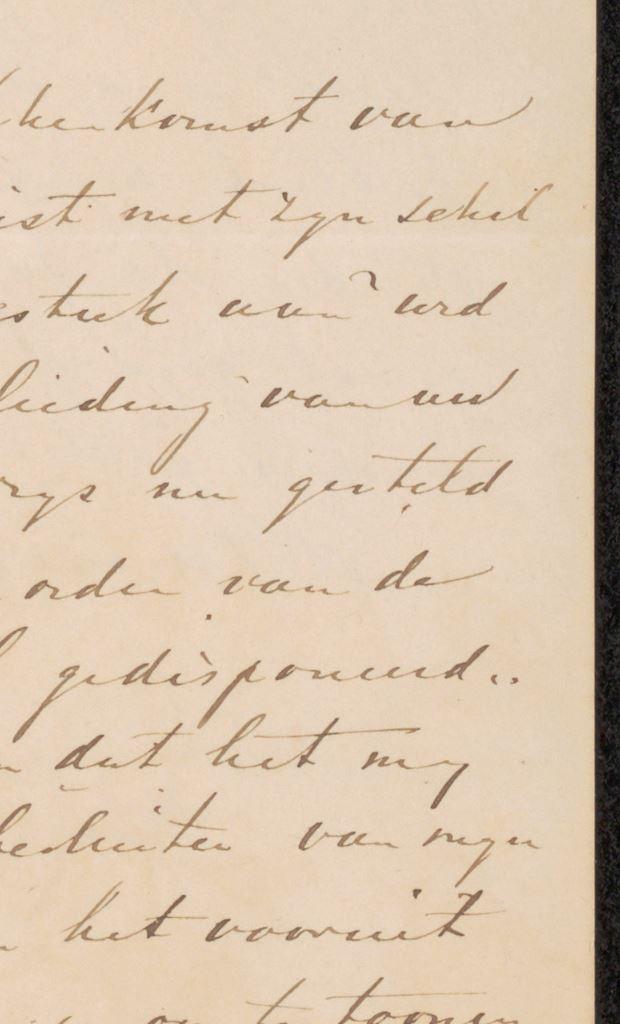 henkomst van
ist met zyn schil
estuk aan ard
leiding van uw
rys nu gesteld
orden van de
gedisponeerd..
dat het my
besluiten van myn
het vooruit
toonen